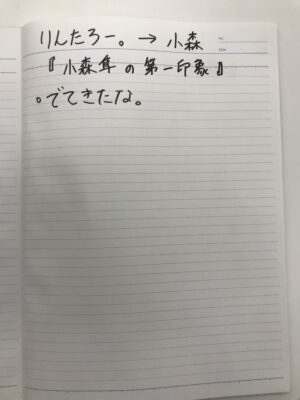 りんたろー。→ 小森
『小森隼の第一印象』
。でてきたな。
No.
Date